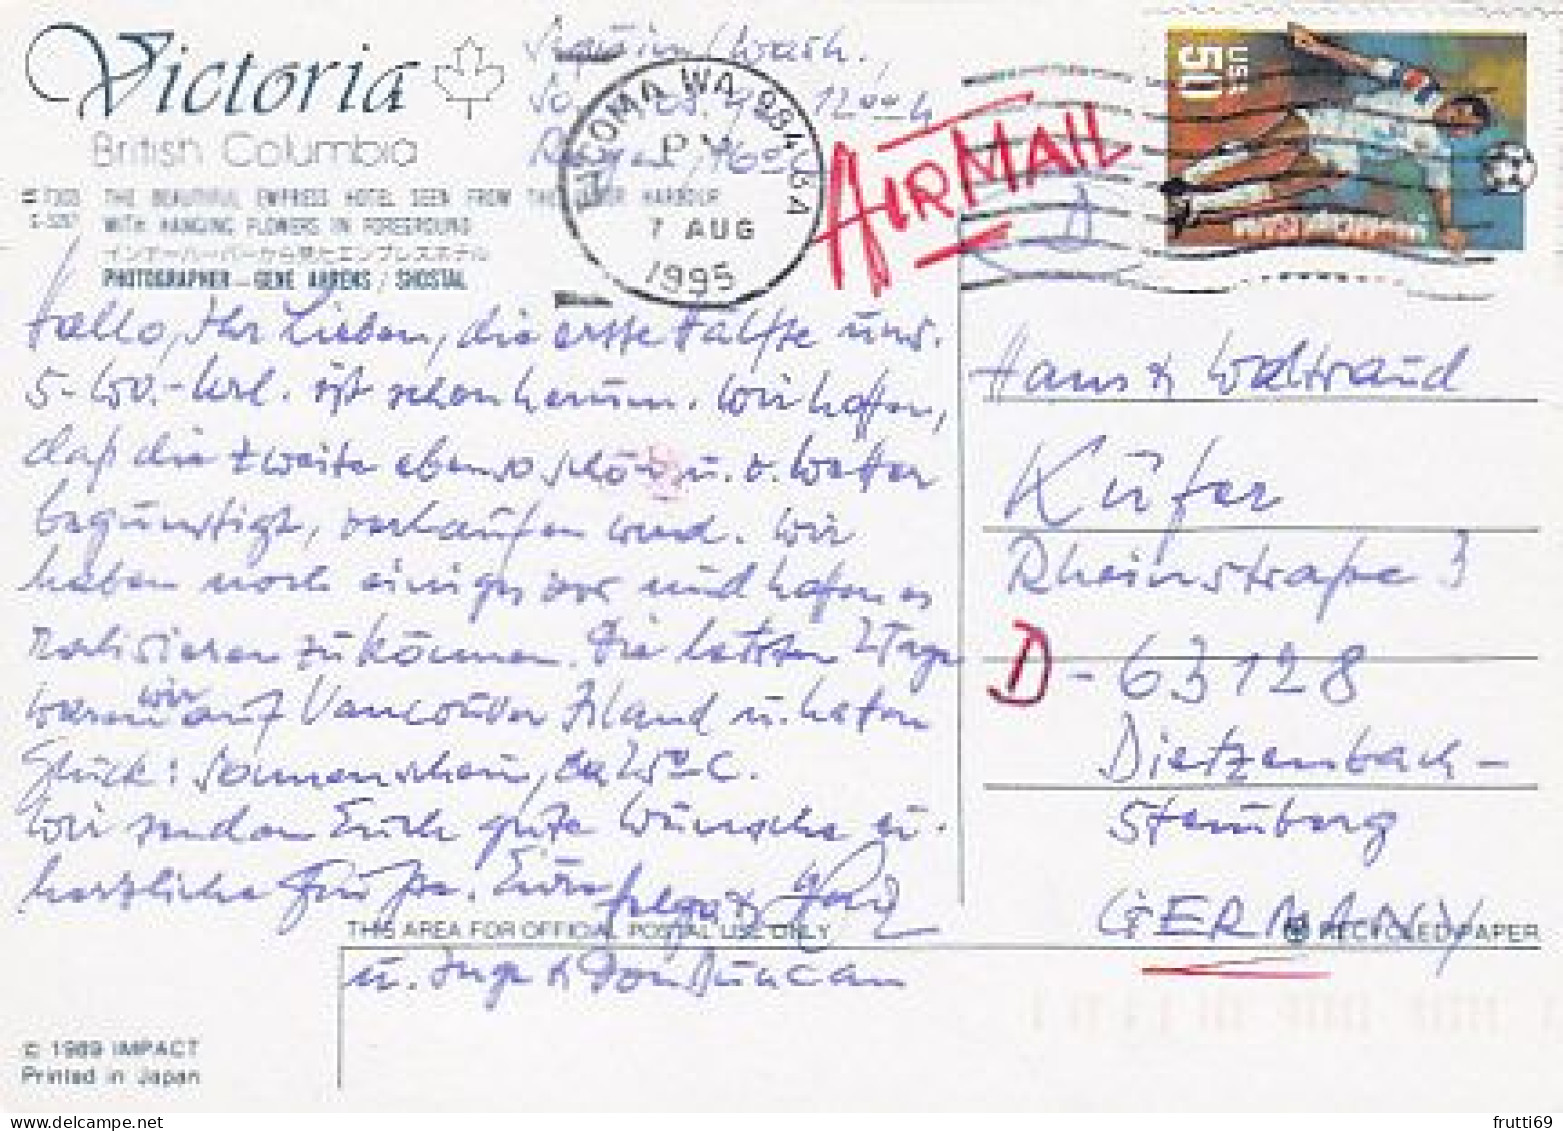 Victoria
British Columbia
THE BEAUTIFUL EMPRESS HOTEL SEEN FROM THE INNER HARBOUR
WITH HANGING FLOWERS IN FOREGROUND
インナーハーバーから見たエンプレスホテル
PHOTOGRAPHER - GENE AHRENS / SHOSTAL
Wash.,
12⁰⁰
TACOMA WA 984
PM
7 AUG
1995
AIRMAIL
50
USA
Hallo, Ihr Lieben, die erste Hälfte uns.
5-Wo.-Url. ist schon herum. Wir hoffen,
daß die zweite ebenso schön u. v. Wetter
begünstigt, verlaufen wird. Wir
haben noch einiges vor und hoffen es
realisieren zu können. Die letzten 2 Tage
waren wir auf Vancouver Island u. hatten
Glück: Sonnenschein, ca 25° C.
Wir senden Euch gute Wünsche u.
herzliche Grüße. Eure Helga &
u. Inge & Don Duncan
Hans & Waltraud
Küfer
Rheinstraße 3
D - 63128
Dietzenbach -
Steinberg
GERMANY
THIS AREA FOR OFFICIAL POSTAL USE ONLY
RECYCLED PAPER
© 1989 IMPACT
Printed in Japan
frutti69